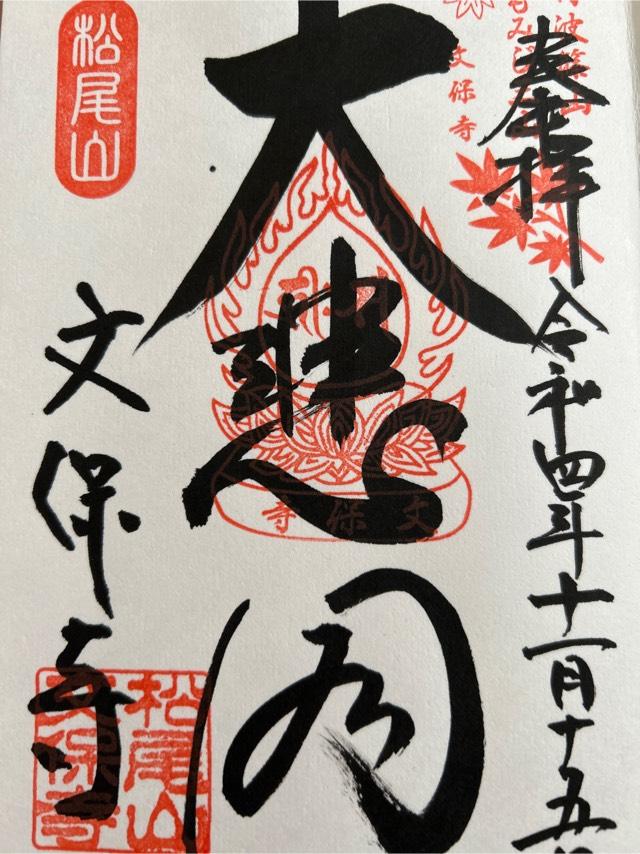 奉拝
令和四年十一月十五日
丹波篠山
もみじ
文保寺
大悲閣
文保寺
松尾山
文保寺
松尾山
文保寺